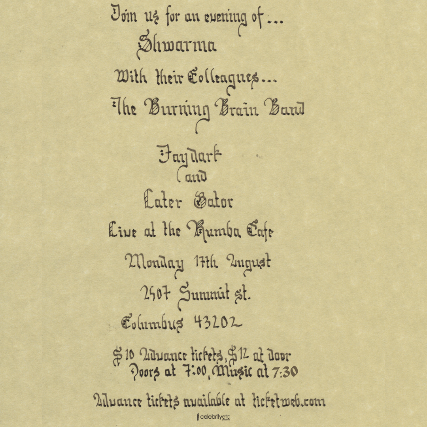 Join us for an evening of...
Shwarma
With their Colleagues...
The Burning Brain Band
Jaydark
and
Later Gator
Live at the Rumba Cafe
Monday 17th August
2507 Summit st.
Columbus 43202
$10 Advance tickets, $12 at door
Doors at 7:00, Music at 7:30
Advance tickets available at ticketweb.com